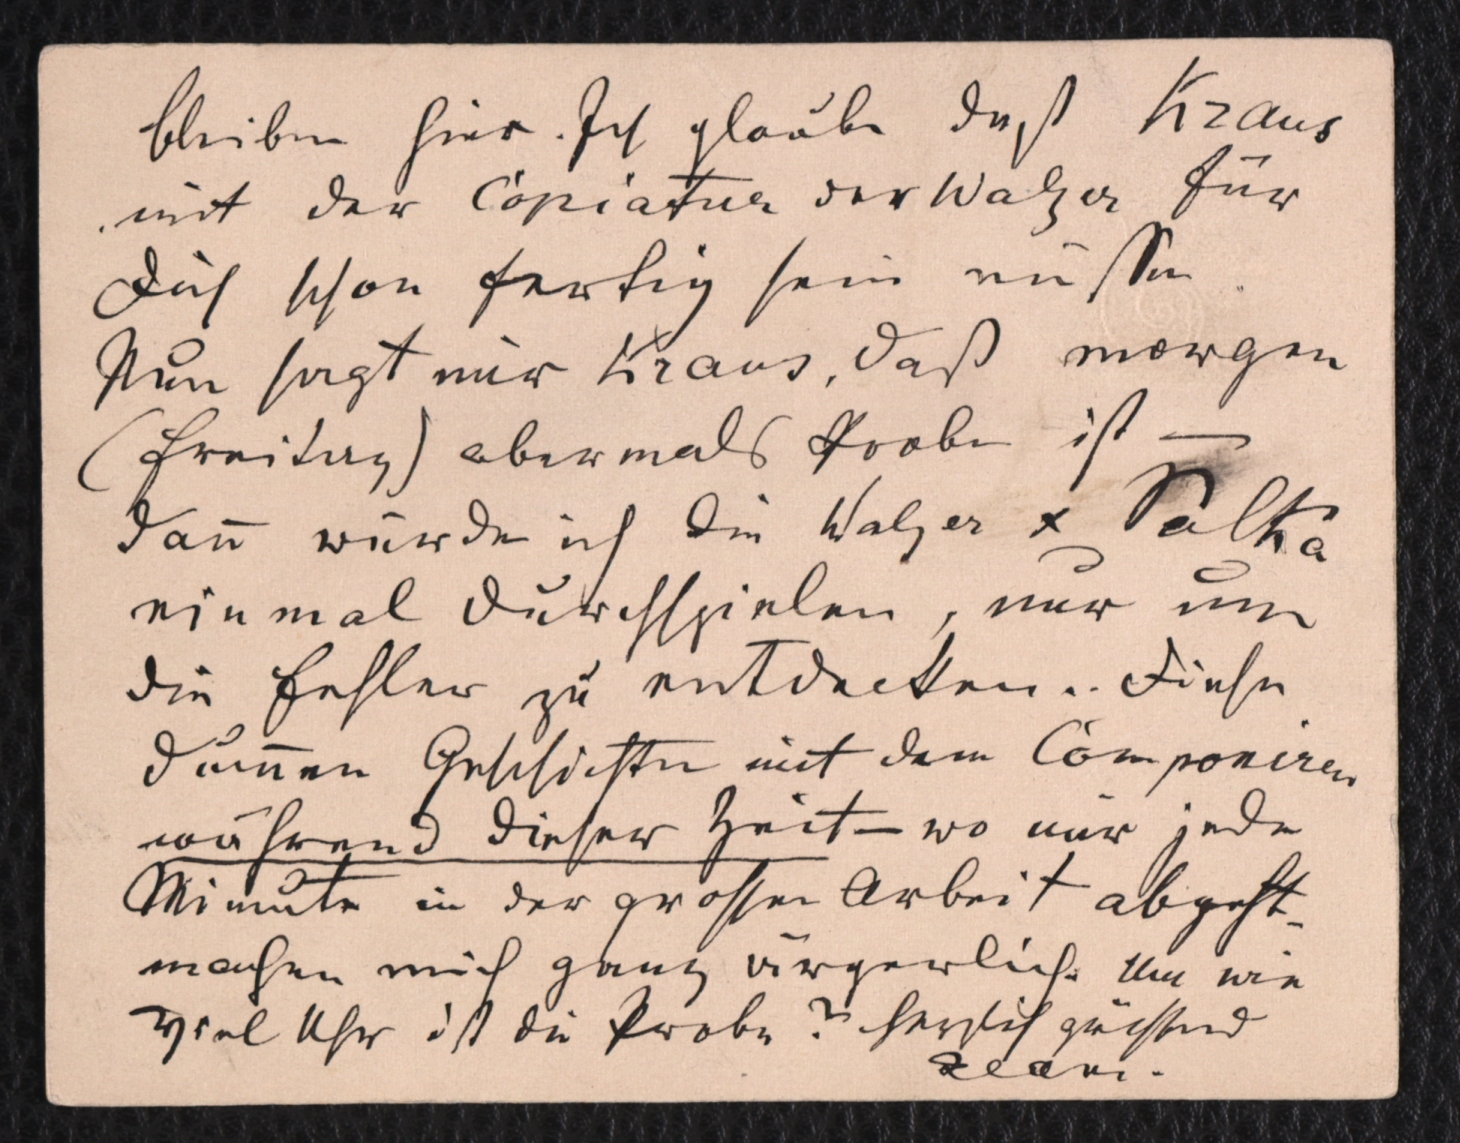 bleiben hier. Ich glaube daß Kraus
mit der Copiatur der Walzer für
Dich schon fertig sein müsse.
Nun sagt mir Kraus, daß morgen
(Freitag) abermals Probe ist —
dan̅ würde ich die Walzer & Polka
einmal durchspielen, nur um
die Fehler zu entdecken.. Diese
dum̅en Geschichten mit dem Componiren
während dieser Zeit – wo mir jede
Minute in der grossen Arbeit abgeht-
machen mich ganz ärgerlich. Um wie
viel Uhr ist die Probe? Herzlich grüssend
Jean.